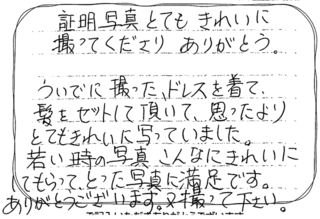 証明写真とてもきれいに
撮ってくださり ありがとう。
ういでに撮った、ドレスを着て、
髪をセットして頂いて、思ったより
とてもきれいに写っていました。
若い時の写真こんなにきれいに
してもらって、とった写真に満足です。
ありがとうございます。又撮って下さい。